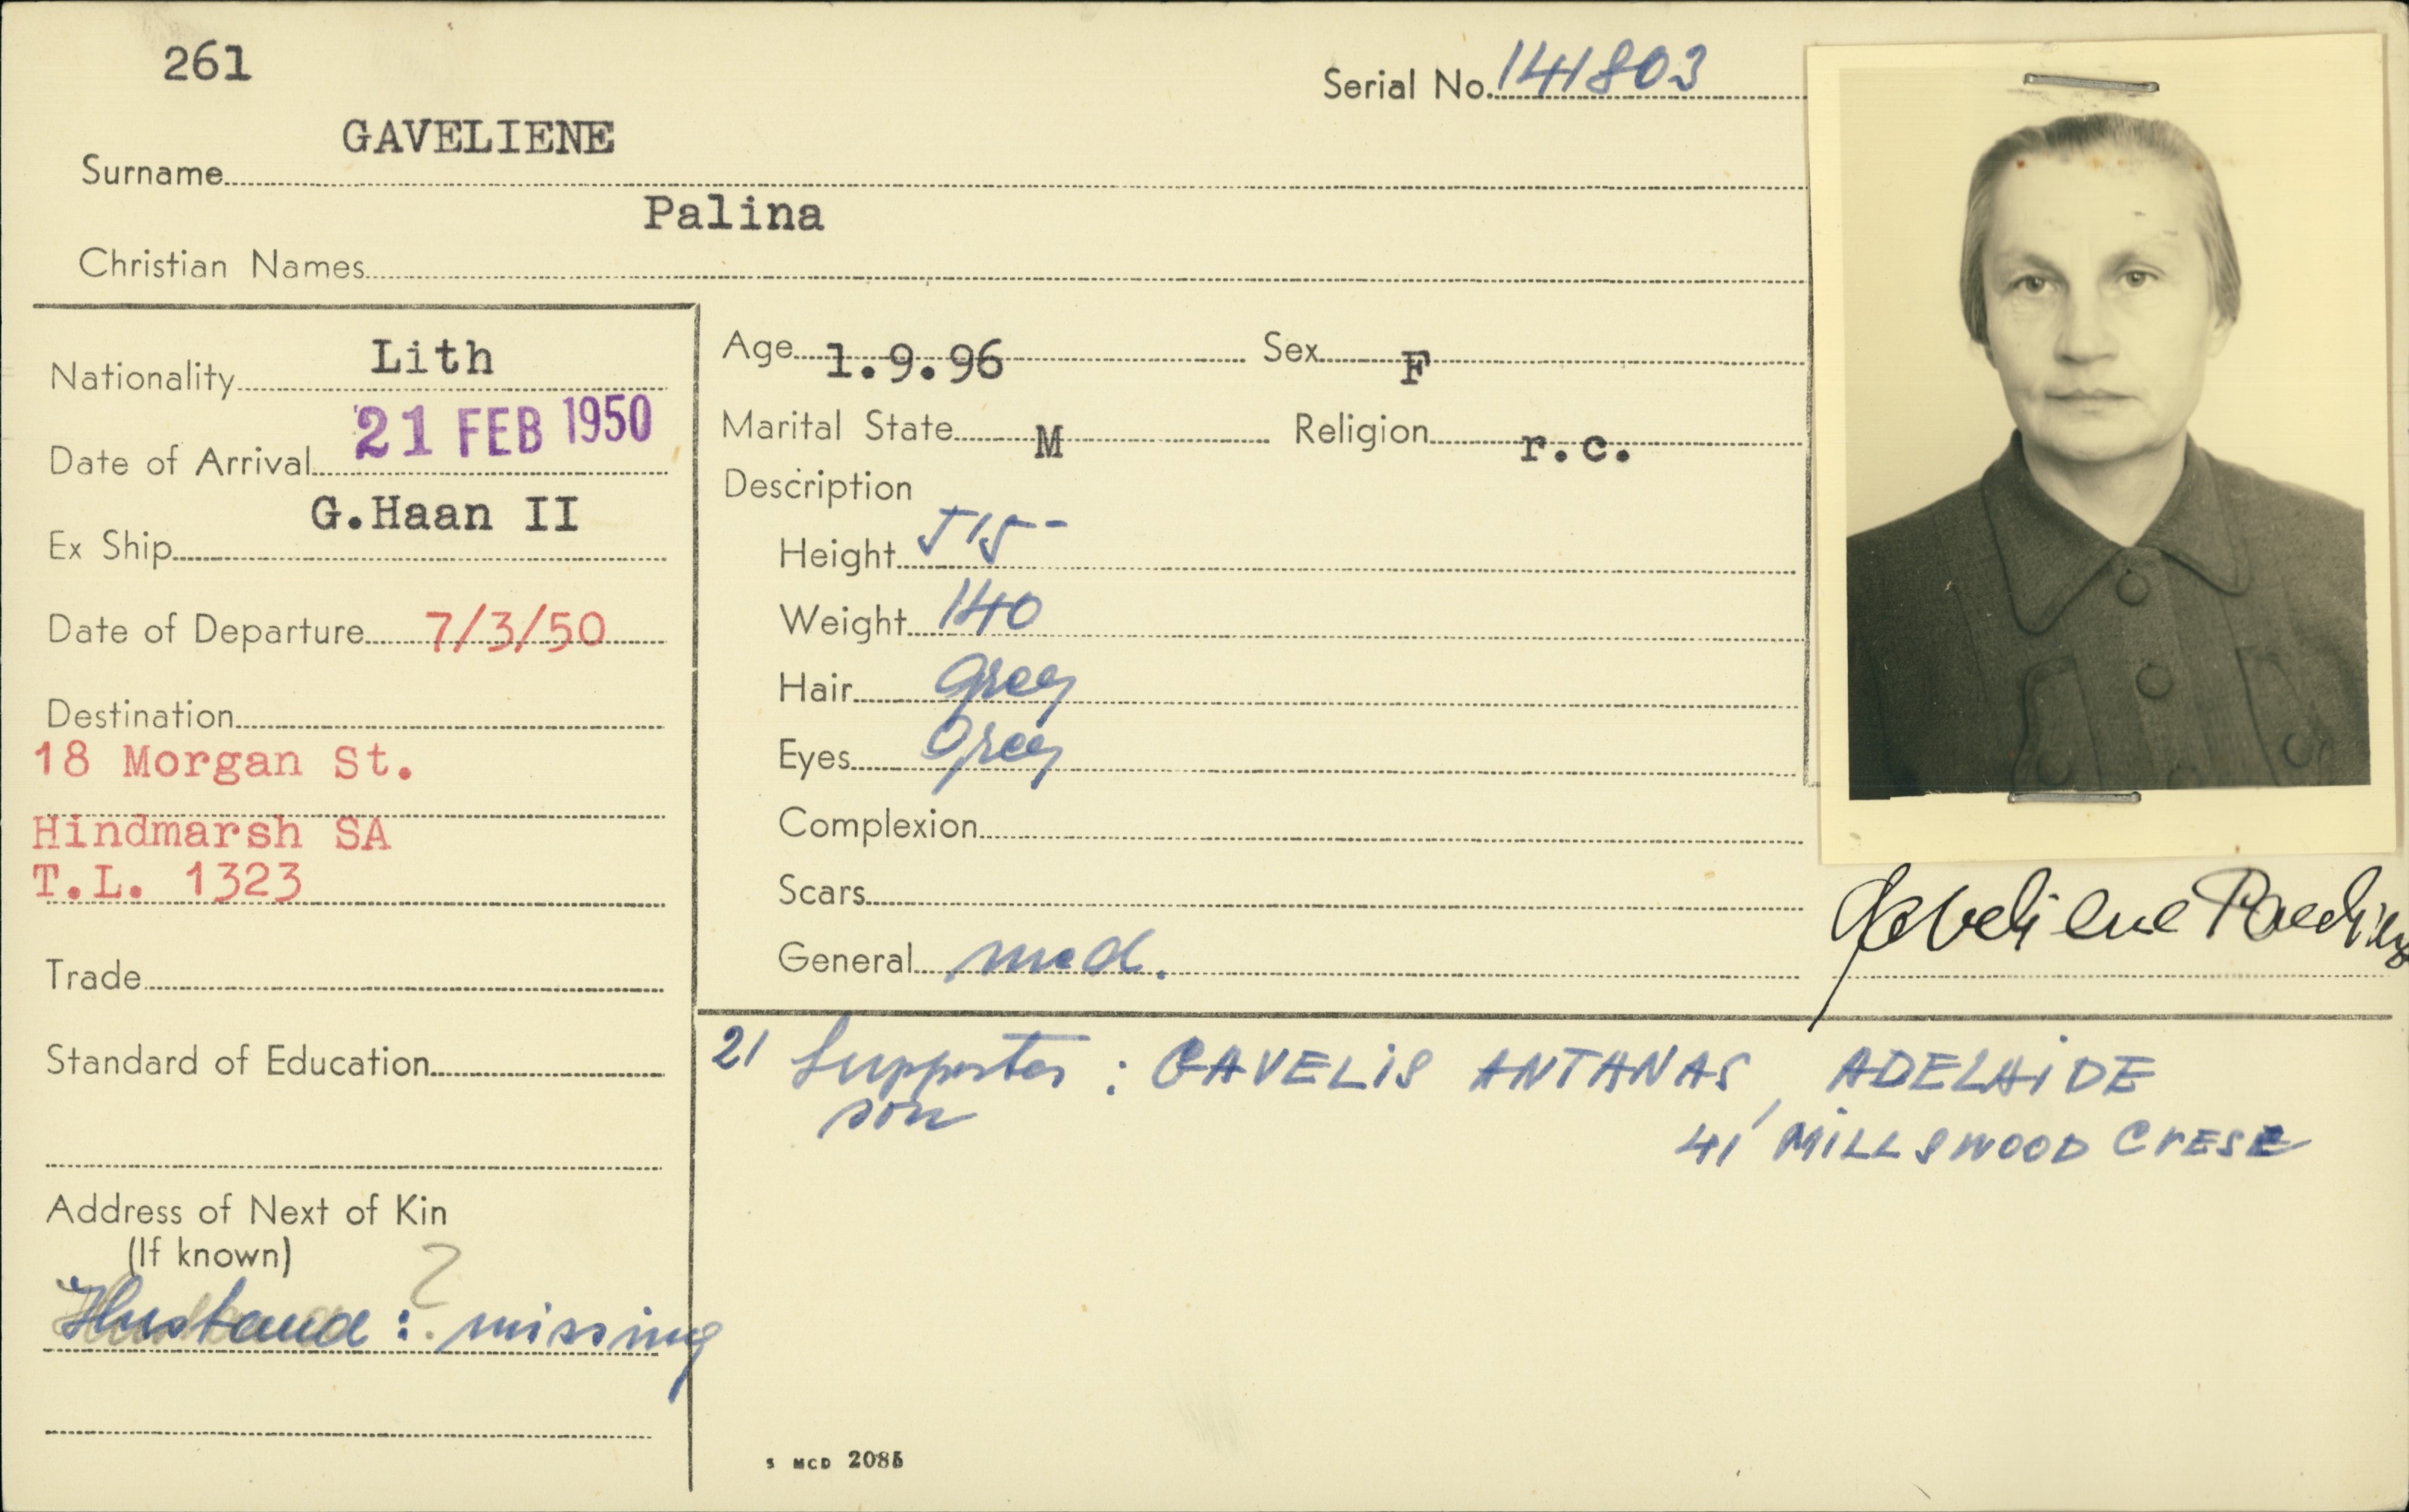 261
Serial No. 141803
GAVELIENE
Surname
Palina
Christian Names
Lith
Nationality
21 FEB 1950
Date of Arrival
G.Haan II
Ex Ship
Date of Departure 7/3/50
Destination
18 Morgan St.
Hindmarsh SA
T.L. 1323
Trade
Standard of Education
Address of Next of Kin
(If known)
?
Husband : missing
Age 1.9.96 Sex F
Marital State M Religion r.c.
Description
Height 5'5-
Weight 140
Hair Grey
Eyes Grey
Complexion
Scars
General med.
Gaveliene
21 Supporter : GAVELIS ANTANAS, ADELAIDE
son
41 MILLSWOOD CRESE
S MCD 2085